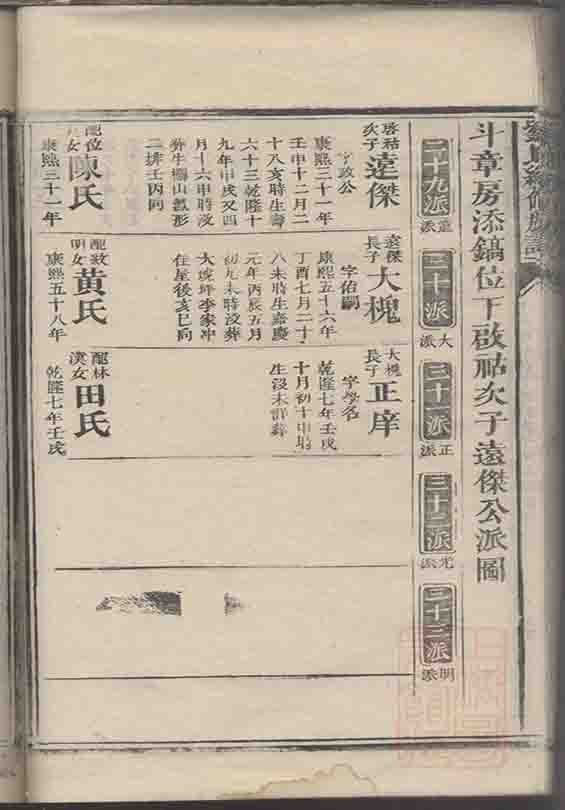 斗章房添鎬位下啟祜次子遠傑公派圖
二十九派
遠派
三十派
大派
三十一派
正派
三十二派
光派
三十三派
明派
啟祜次子
遠傑
字政公
康熙三十一年
壬申十二月二
十八亥時生壽
六十三乾隆十
九年甲戌又四
月十六申時沒
葬生塘山瓢形
二排壬丙向
配位
女
陳氏
康熙三十一年
遠傑長子
大槐
字佑嗣
康熙五十六年
丁酉七月二十
八未時生嘉慶
元年丙辰五月
初九未時沒葬
大坡坪李家冲
住屋後亥巳向
配政明女
黃氏
康熙五十八年
大槐長子
正庠
字學名
乾隆七年壬戌
十月初十申時
生沒未詳葬
配林漢女
田氏
乾隆七年壬戌